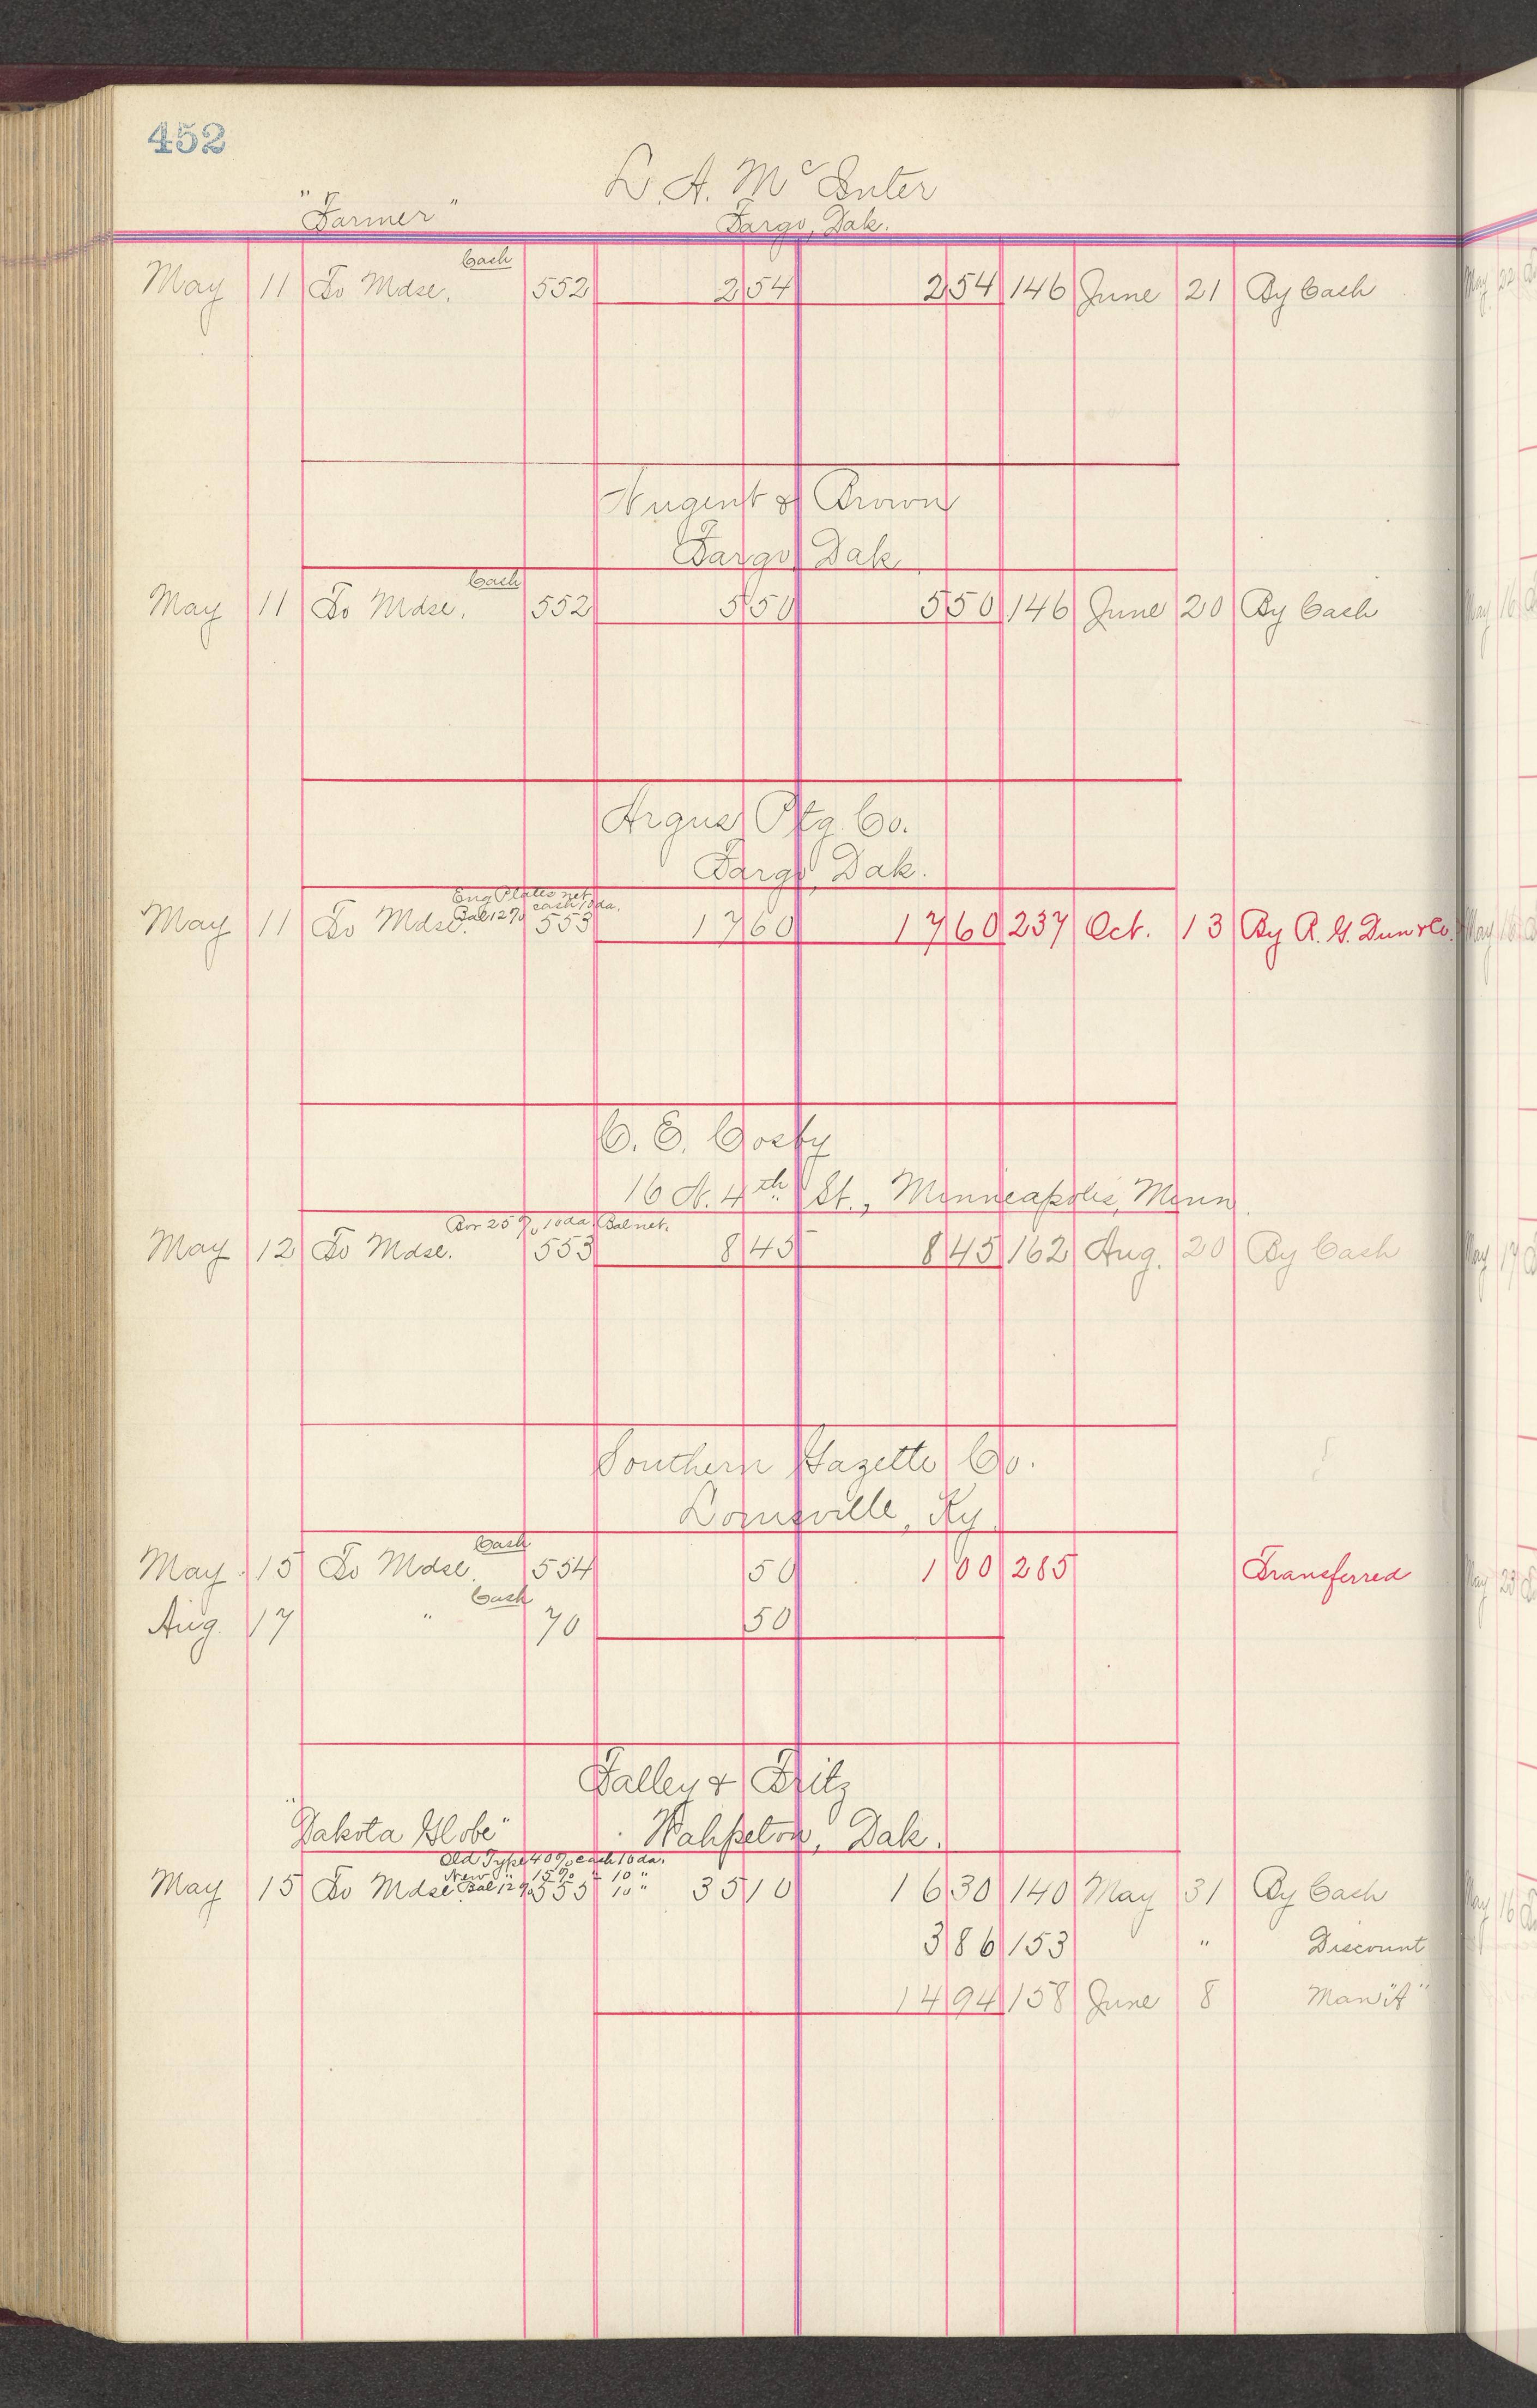 452
L. A. McEnter
"Farmer"
Fargo, Dak.
Cash
May 11 To Mdse. 552 2 54 2 54 146 June 21 By Cash
Nugent & Brown
Fargo, Dak.
Cash
May 11 To Mdse. 552 5 50 5 50 146 June 20 By Cash
Argus Ptg Co.
Fargo, Dak.
Eng Plates net
Bal 12% cash 10 da.
May 11 To Mdse. 553 17 60 17 60 237 Oct. 13 By R. G. Dun & Co.
C. E. Cosby
16 N. 4th St., Minneapolis, Minn.
Bor 25% 10 da. Bal net.
May 12 To Mdse. 553 8 45 8 45 162 Aug. 20 By Cash
Southern Gazette Co.
Louisville, Ky.
Cash
May 15 To Mdse. 554 50 1 00 285 Transferred
Cash
Aug. 17 " 70 50
Falley & Fritz
"Dakota Globe" Wahpeton, Dak.
Old Type 40% cash 10 da.
New " 15% " 10 "
Bal 12% 10 "
May 15 To Mdse. 555 35 10 16 30 140 May 31 By Cash
3 86 153 " Discount
14 94 158 June 8 Man "A"